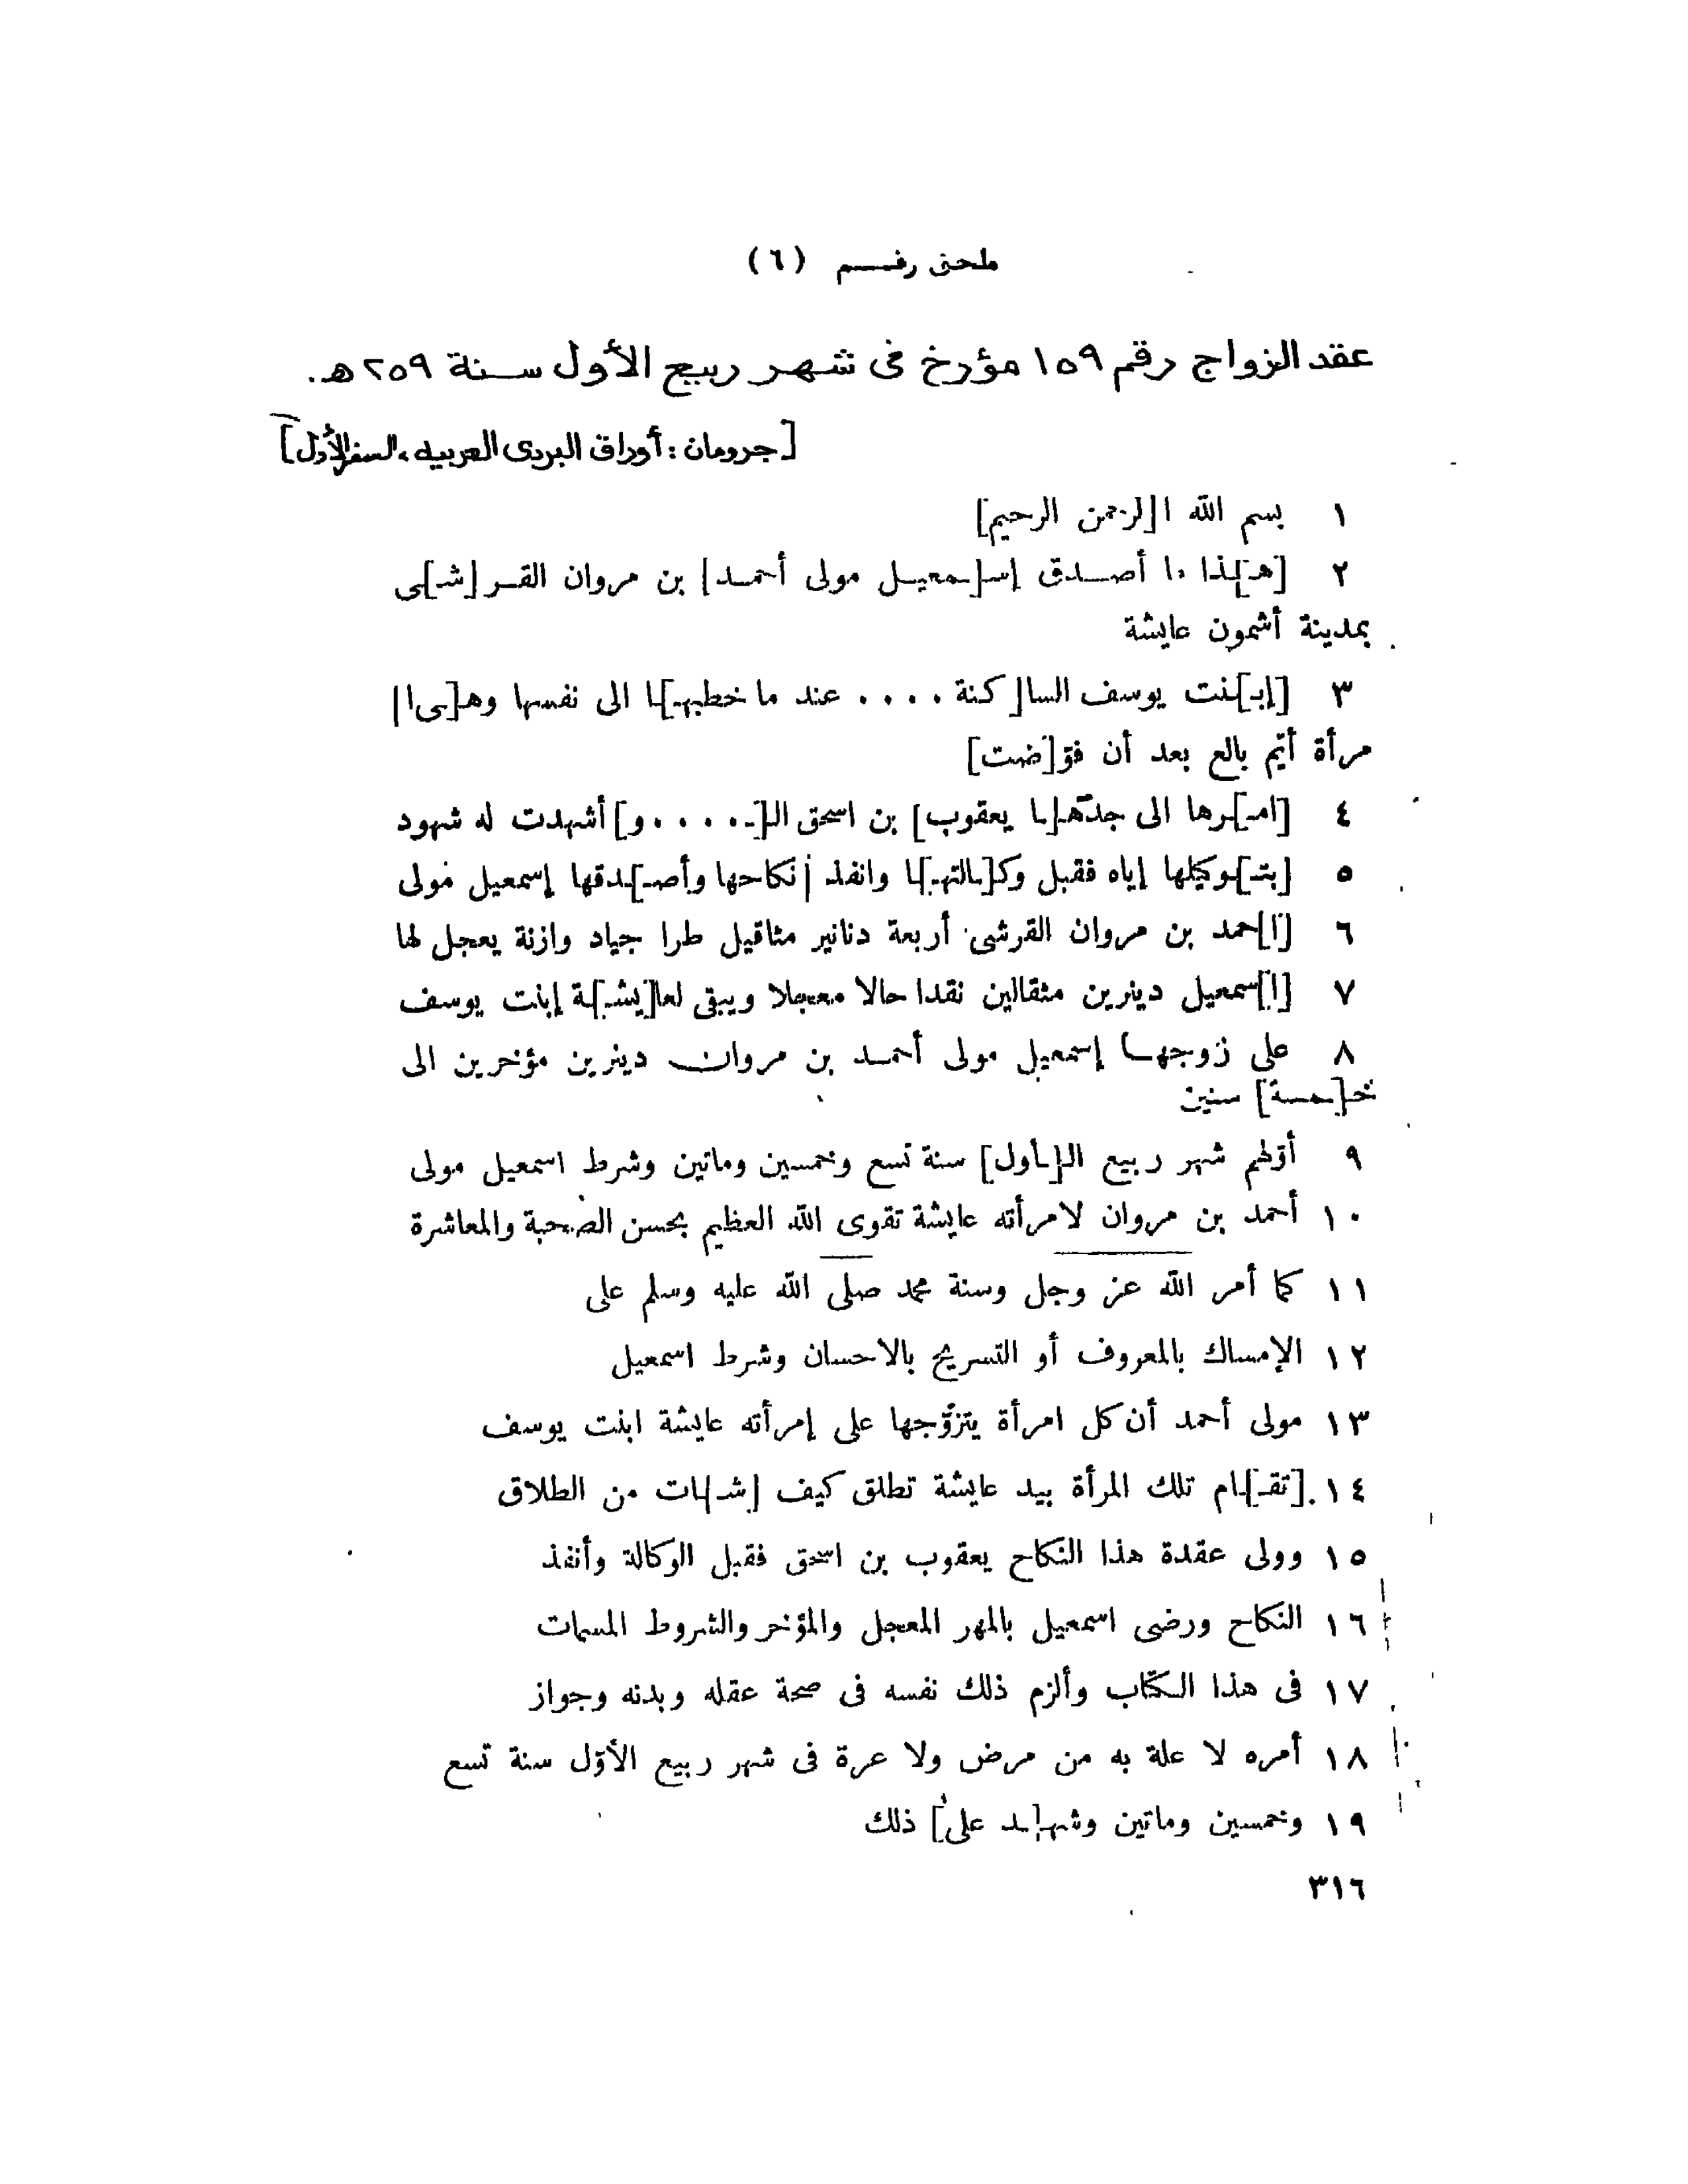 ملحق رقـــم (٦)
عقد الزواج رقم ١٥٩ مؤرخ فى شهر ربيع الأول سنة ٢٥٩هـ.
[جرومان : أوراق البردى العربيه ، السفر الأول]
١ بسم الله ا[لرحمن الرحيم]
٢ [هـ]ـذا ما أصـدق إسـ[ـمعيـل مولى أحمـد] بن مروان القـر[شـ]ـى
بمدينة أشمون عايشة
٣ [إبـ]ـنت يوسف السا[كنة . . . . عند ما خطبهـ]ـا الى نفسها وهـ[ـى ا]
مرأة أيّم بالع بعد أن فوّ[ضت]
٤ [امـ]ـرها الى جدّهـ[ـا يعقوب] بن اسحق الـ[ـ. . . . . و] أشهدت له شهود
٥ [بتـ]ـوكيلها إياه فقبل وكـ[ـالتهـ]ـا وانفذ [نكاحها وأصـ]ـدقها إسمعيل مولى
٦ [ا]حمد بن مروان القرشى أربعة دنانير مثاقيل طرا جياد وازنة يعجل لها
٧ [ا]سمعيل دينرين مثقالين نقدا حالا معجلا ويبقى لعا[يشـ]ـة إبنت يوسف
٨ على زوجهـا إسمعيل مولى أحمـد بن مروان دينرين مؤخرين الى
خـ[ـمسة] سنين
٩ أوّلهم شهر ربيع الـ[ـأول] سنة تسع وخمسين وماتين وشرط اسمعيل مولى
١٠ أحمد بن مروان لامرأته عايشة تقوى الله العظيم بحسن الصحبة والمعاشرة
١١ كما أمر الله عز وجل وسنة محمد صلى الله عليه وسلم على
١٢ الإمساك بالمعروف أو التسريح بالاحسان وشرط اسمعيل
١٣ مولى أحمد أن كل امرأة يتزوّجها على إمرأته عايشة ابنت يوسف
١٤ [تقـ]ـام تلك المرأة بيد عايشة تطلق كيف [شـ]ـات من الطلاق
١٥ وولى عقدة هذا النكاح يعقوب بن اسحق فقبل الوكالة وأنفذ
١٦ النكاح ورضى اسمعيل بالمهر المعجل والمؤخر والشروط المسمات
١٧ فى هذا الكتاب وألزم ذلك نفسه فى صحة عقله وبدنه وجواز
١٨ أمره لا علة به من مرض ولا عرة فى شهر ربيع الأوّل سنة تسع
١٩ وخمسين وماتين وشهـ[ـد على] ذلك
٣١٦